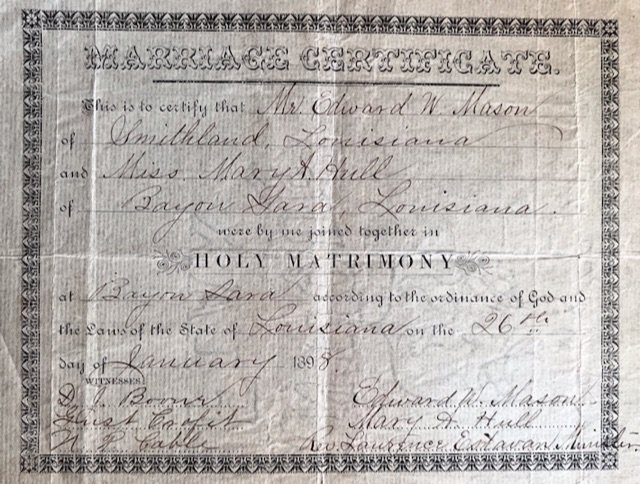 MARRIAGE CERTIFICATE.
This is to certify that Mr. Edward W. Mason
of Smithland, Louisiana
and Miss. Mary A. Hull
of Bayou Sara, Louisiana.
were by me joined together in
HOLY MATRIMONY
at Bayou Sara according to the ordinance of God and
the Laws of the State of Louisiana on the 26th
day of January 1898.
WITNESSES:
D. J. Edward W. Mason
Mary A. Hull
Rev. Laurence Minister